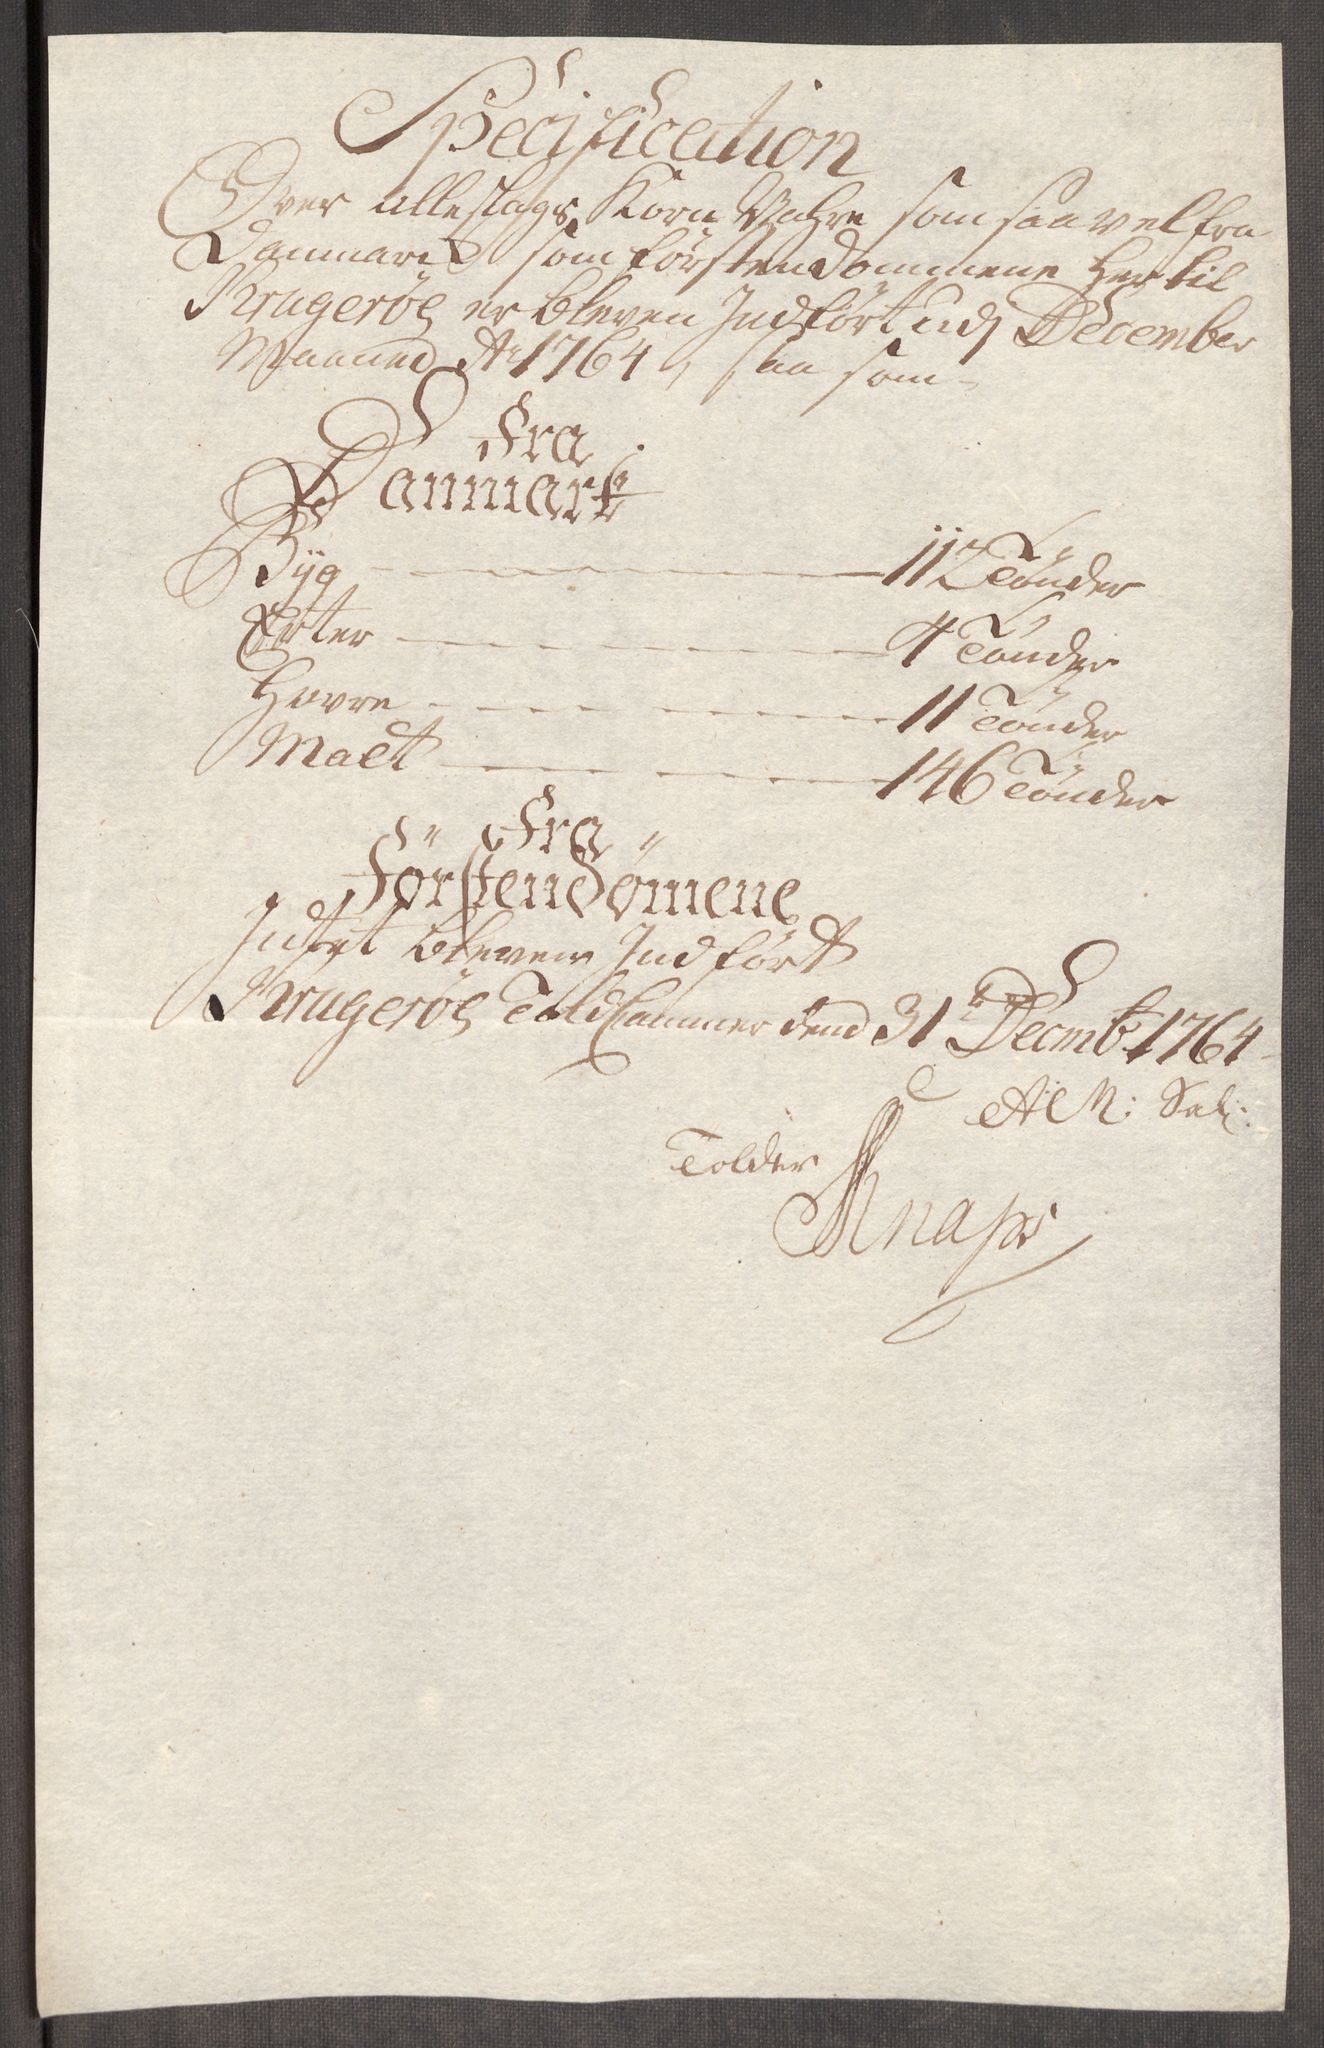 Specification
Over alleslags Korn Vahre som saavel fra
Danmarck som Førstendommene her til
Kragerøe er bleven Indført udj December
Maaned Ao 1764, saa som
Fra
Danmark
Byg 112 Tønder
Erter 4 Tønder
Havre 11 Tønder
Malt 146 Tønder
Fra
Førstendømene
Intet bleven Indført
Kragerøe Told Cammer dend 31 Decmb: 1764
A M: Sal:
Tolder Knaps